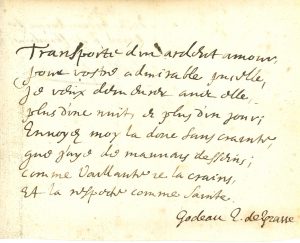 Transporté d'un ardent amour,
pour vostre admirable pucelle,
Je veux demeurer avec elle
plus d'une nuit, & plus d'un jour;
Envoyez moy la donc sans crainte,
que j'aye de mauvais desseins;
comme vaillante je la crains,
Et la respecte comme sainte.
Godeau E. de Grasse